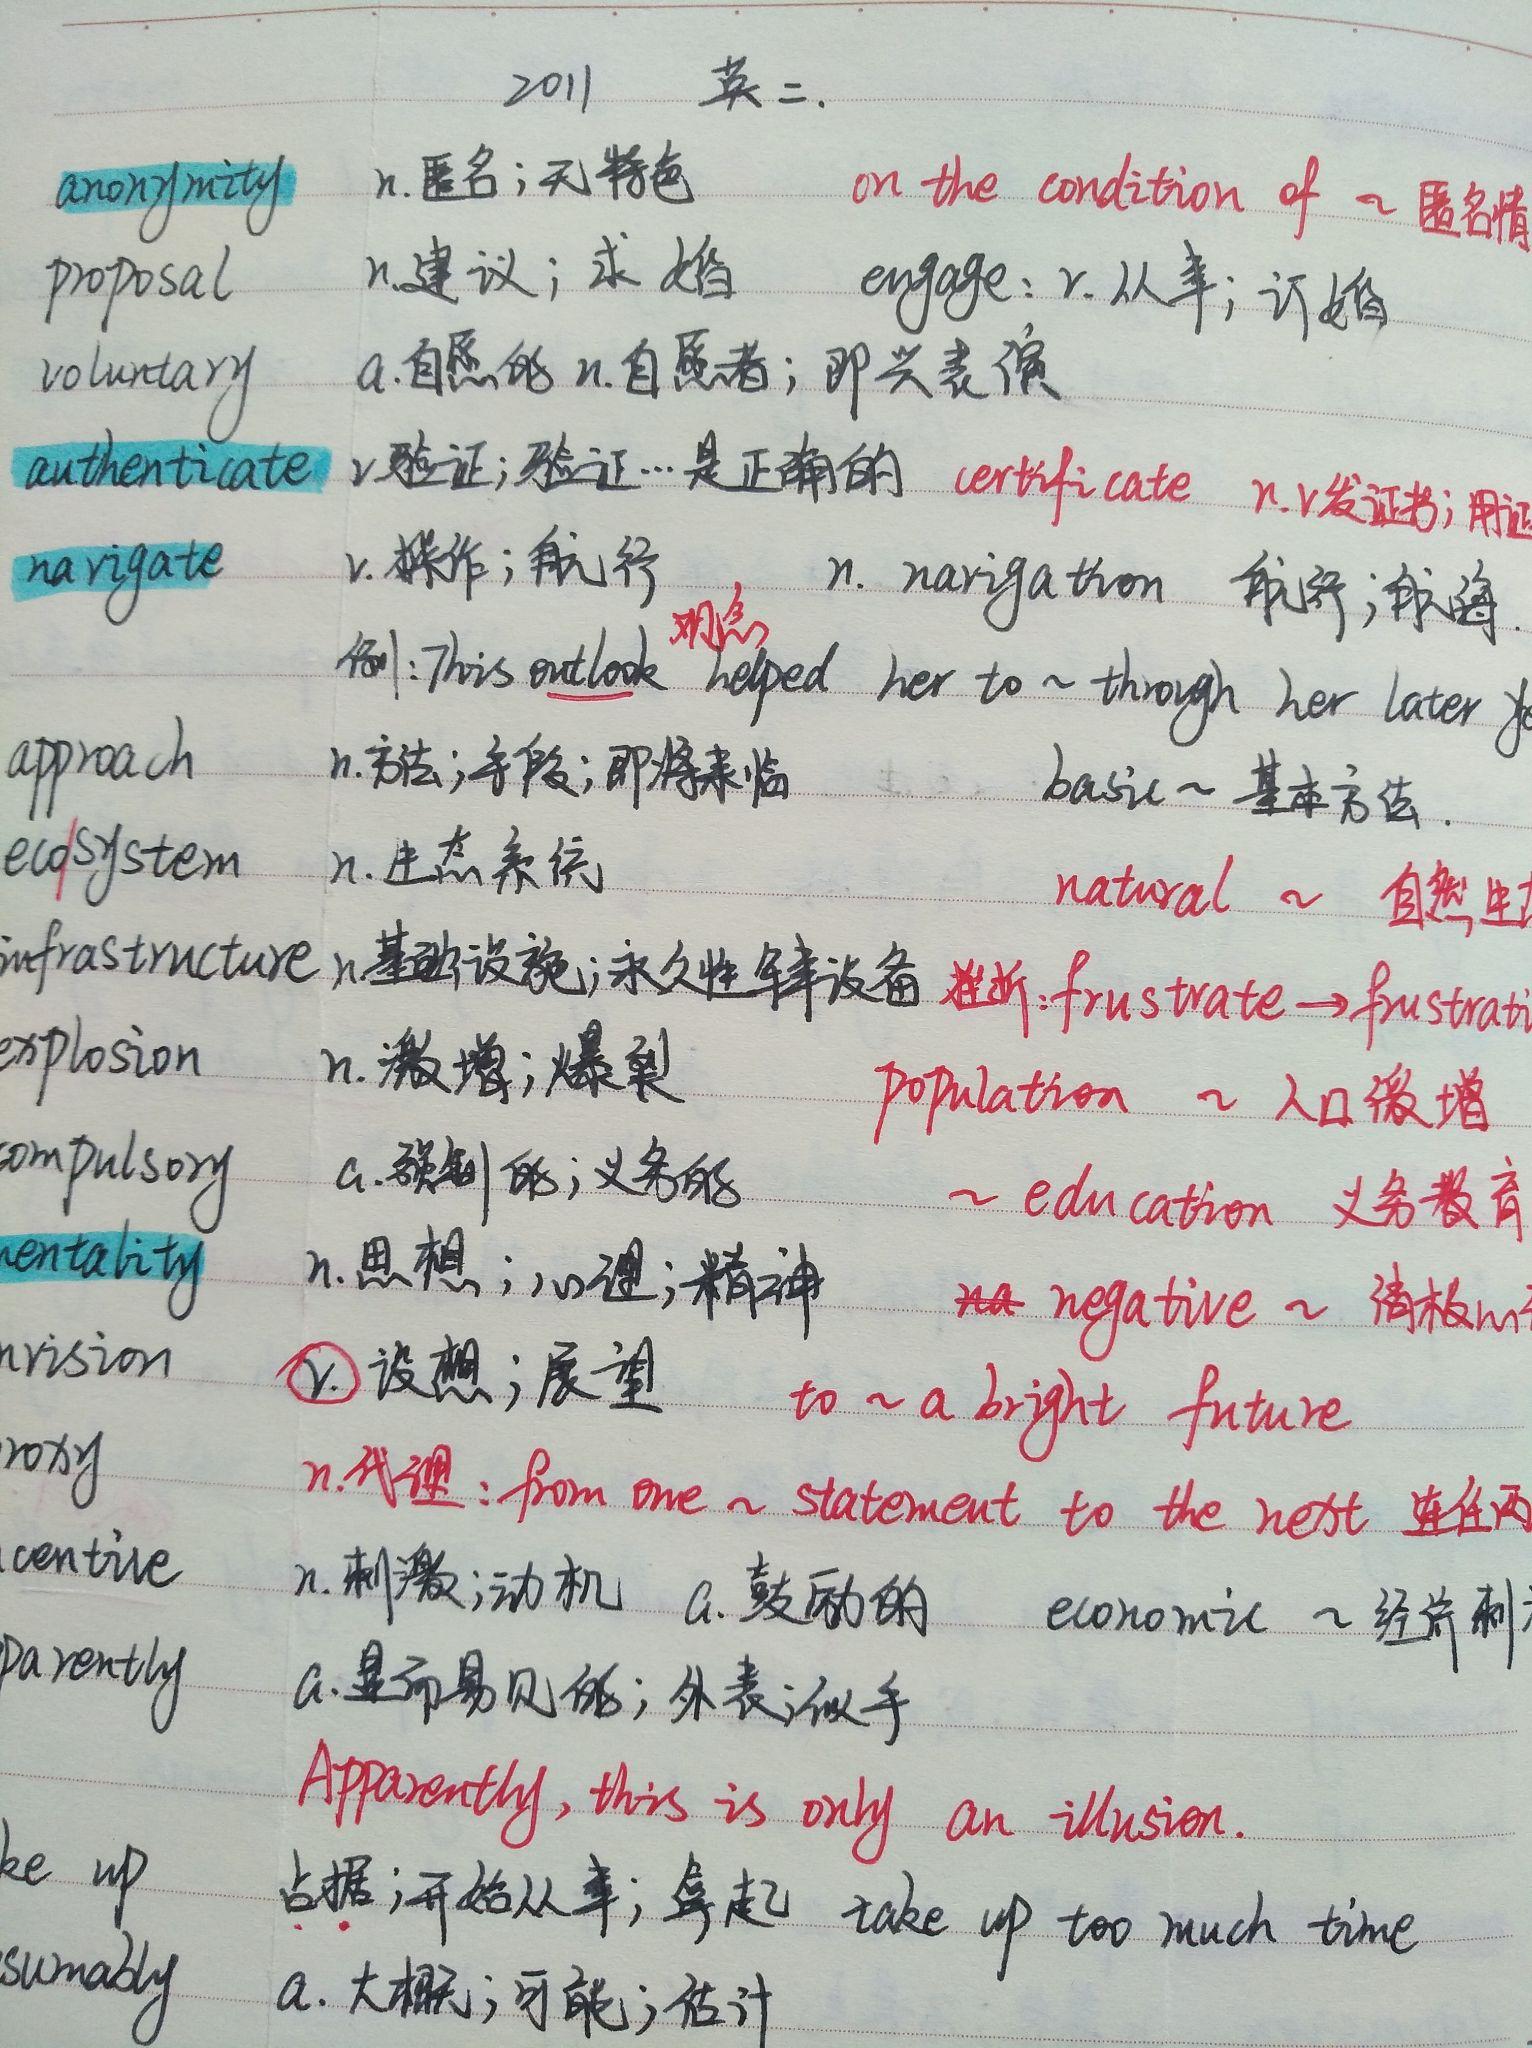 2011 英二.
anonymity n.匿名;无特色 on the condition of ~ 匿名情
proposal n.建议;求婚 engage: v.从事;订婚
voluntary a.自愿的 n.自愿者;即兴表演
authenticate v验证;验证…是正确的 certificate n.v发证书;用证
navigate v.操作;航行 n. navigation 航行;航海.
观念
例:This outlook helped her to ~ through her later ye
approach n.方法;手段;即将来临 basic ~ 基本方法.
ecosystem n.生态系统 natural ~ 自然生
infrastructure n.基础设施;永久性军事设备 挫折:frustrate → frustrati
explosion n.激增;爆裂 population ~ 人口激增
compulsory a.强制的;义务的 ~ education 义务教育
mentality n.思想;心理;精神 na negative ~ 消极的
nvision v. 设想;展望 to ~ a bright future
roxy n.代理: from one ~ statement to the next 连任两
centive n.刺激;动机 a.鼓励的 economic ~ 经济刺
parently a.显而易见的;外表;似乎
Apparently, this is only an illusion.
ke up 占据;开始从事;拿起 take up too much time
sumably a.大概;可能;估计